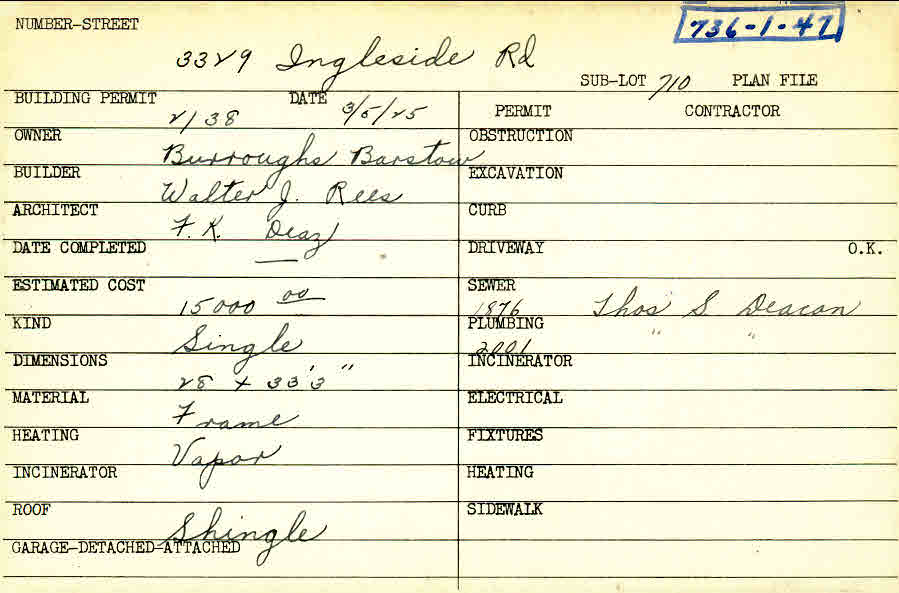 NUMBER-STREET
736-1-47
3329 Ingleside Rd
SUB-LOT 710 PLAN FILE
BUILDING PERMIT 2138 DATE 3/5/25
PERMIT CONTRACTOR
OWNER Burroughs Barstow
OBSTRUCTION
BUILDER Walter J. Rees
EXCAVATION
ARCHITECT F. K. Deaz
CURB
DATE COMPLETED —
DRIVEWAY O.K.
ESTIMATED COST 15000 00
SEWER 1876 Thos S. Deacon
KIND Single
PLUMBING 2001 " "
DIMENSIONS 28 x 33'3"
INCINERATOR
MATERIAL Frame
ELECTRICAL
HEATING Vapor
FIXTURES
INCINERATOR
HEATING
ROOF Shingle
SIDEWALK
GARAGE-DETACHED-ATTACHED